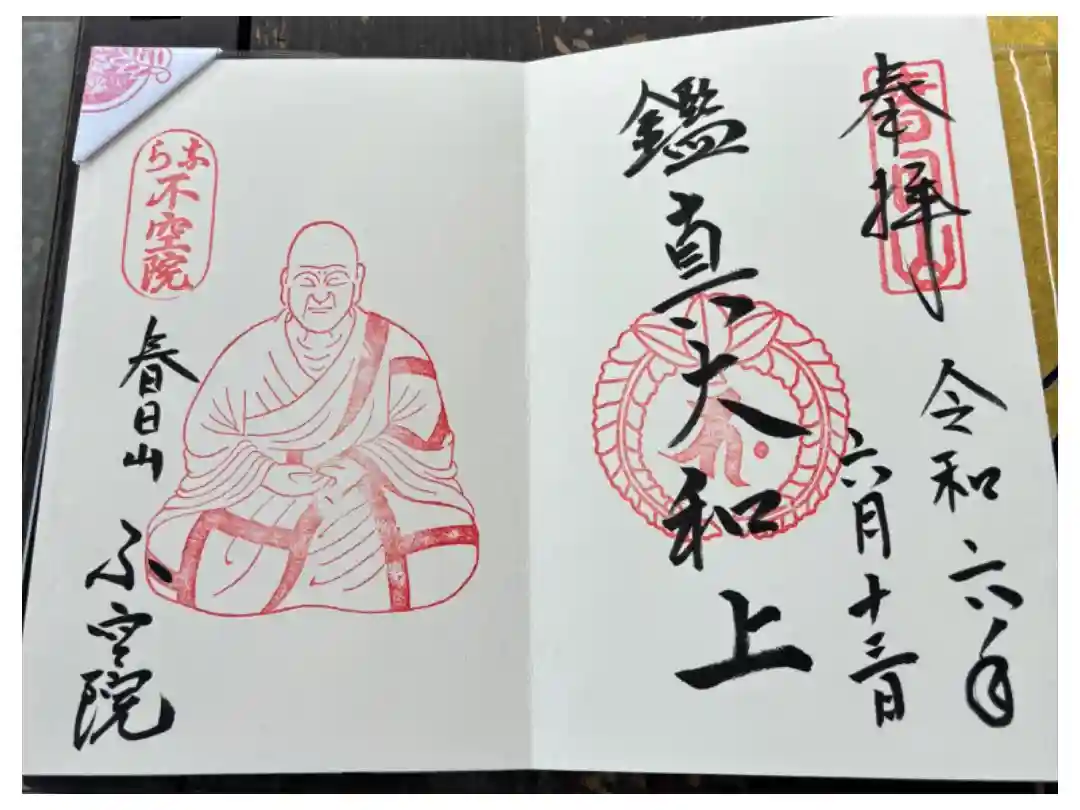 奉拝
令和六年
六月十三日
鑑真大和上
なら
不空院
春日山
ふ空院